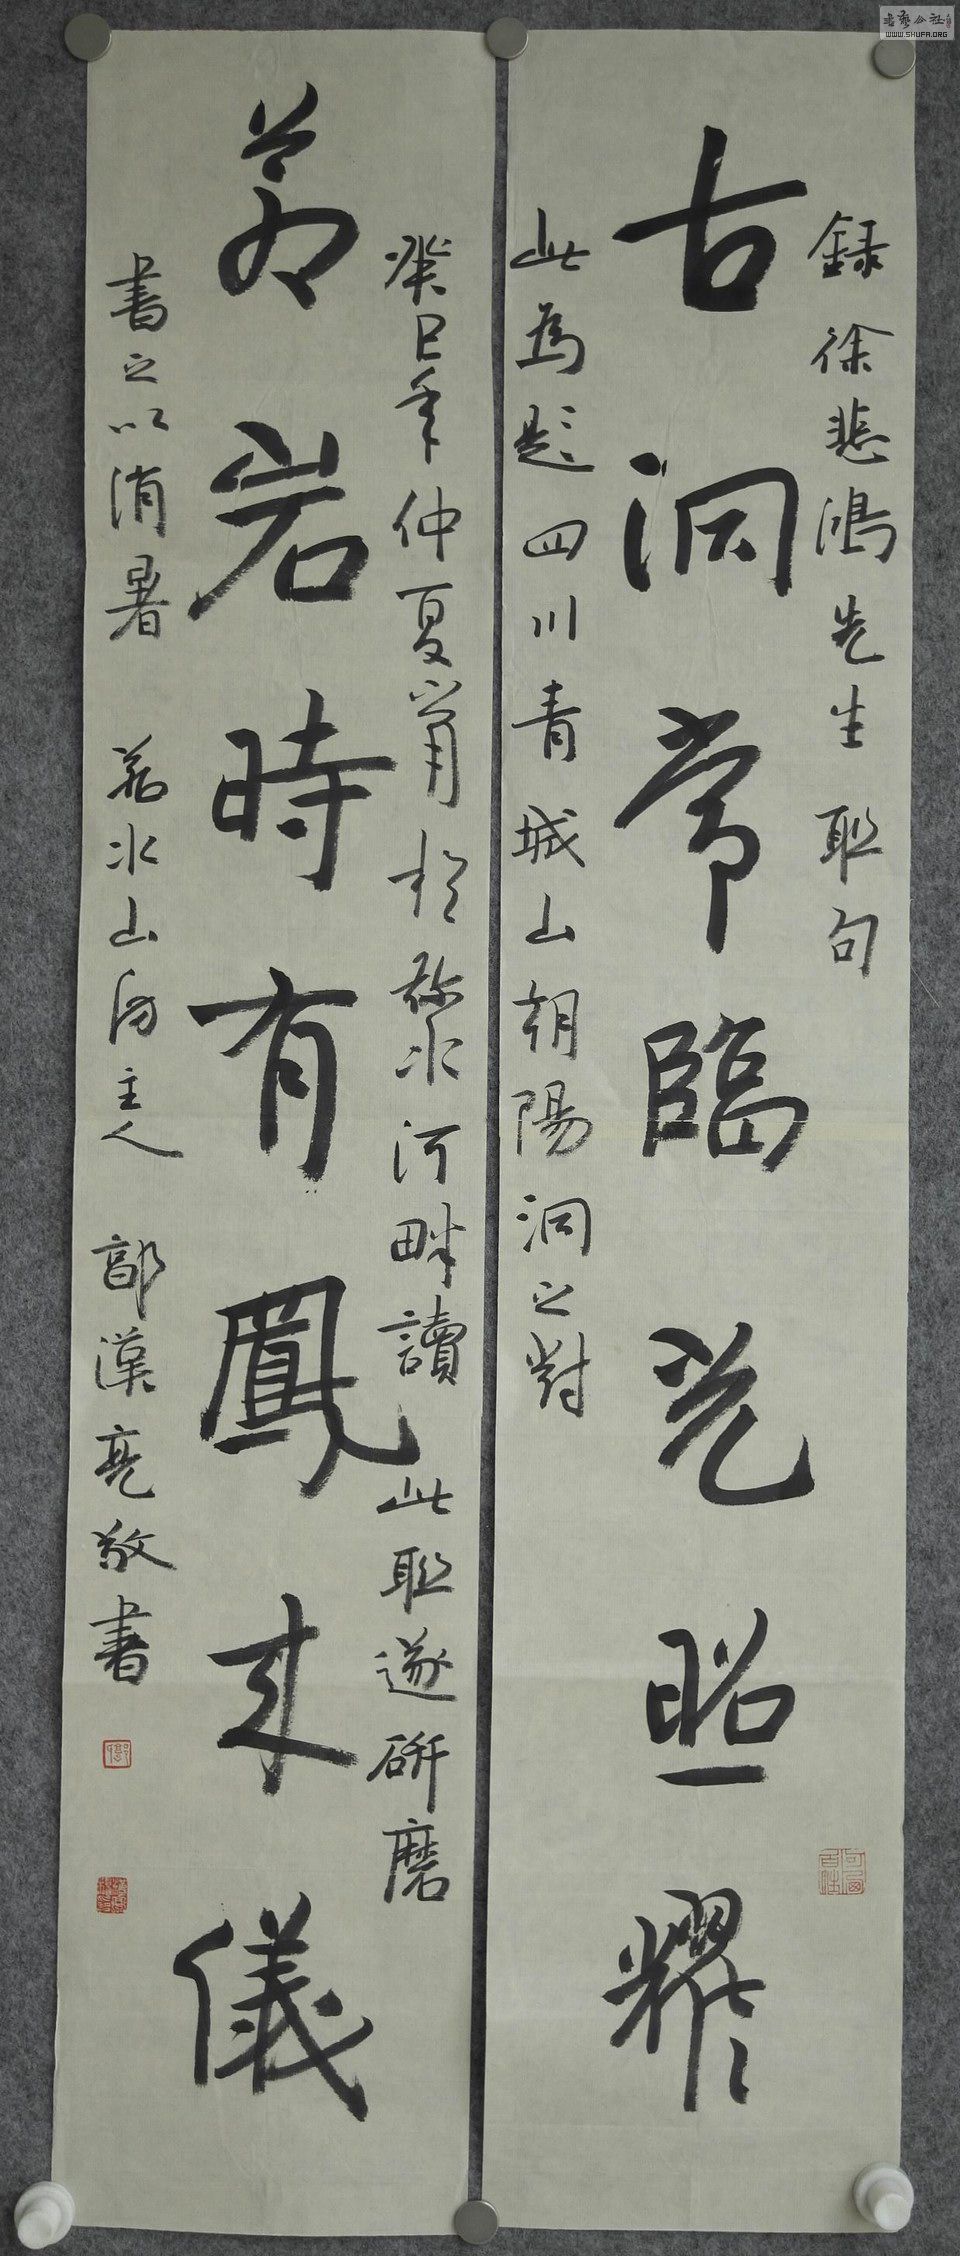 書藝公社
WWW.SHUFA.ORG
録徐悲鴻先生联句
古洞常臨光照耀
此為題四川青城山朝陽洞之對
癸巳年仲夏宵於弥水河畔讀此联遂研磨
蒼岩時有鳳来儀
書之以消暑 若水山房主人 郭漢亮敬書